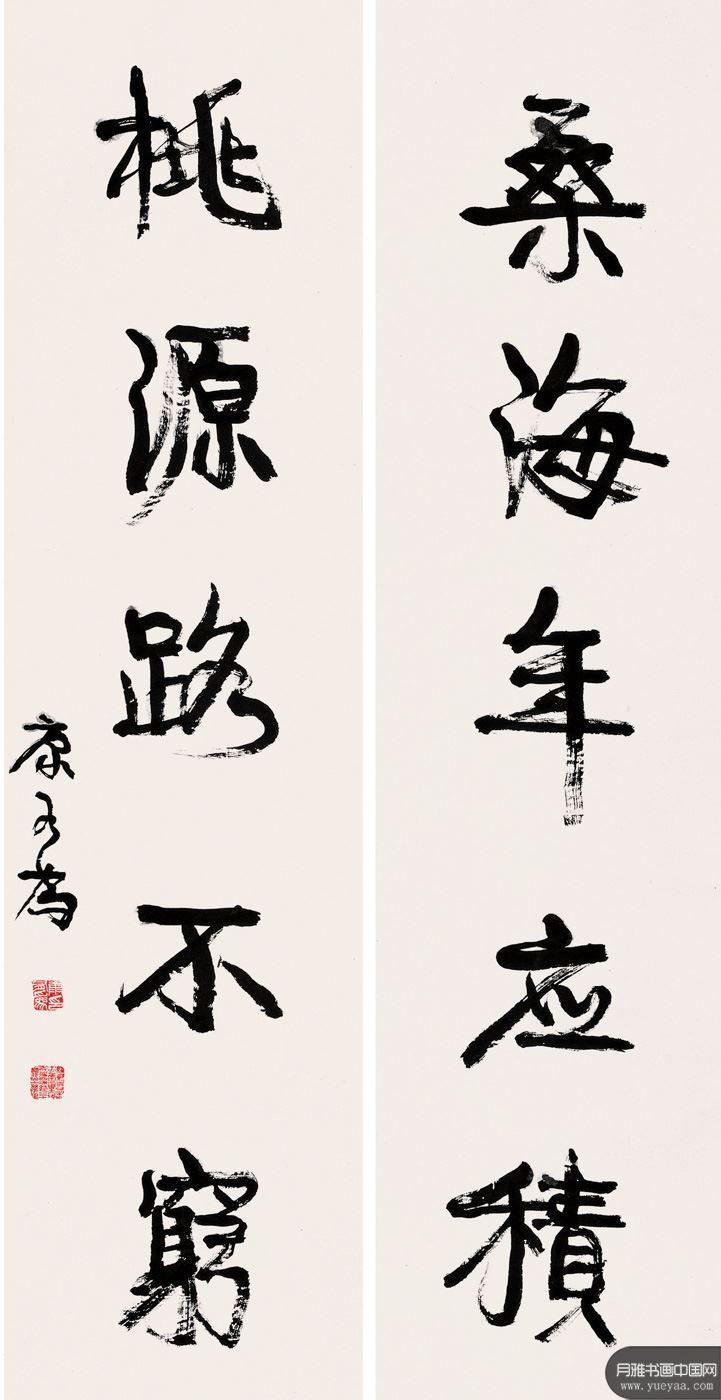 桑海年应積
桃源路不窮
康有為
月雅书画中国网
www.yueyaa.com